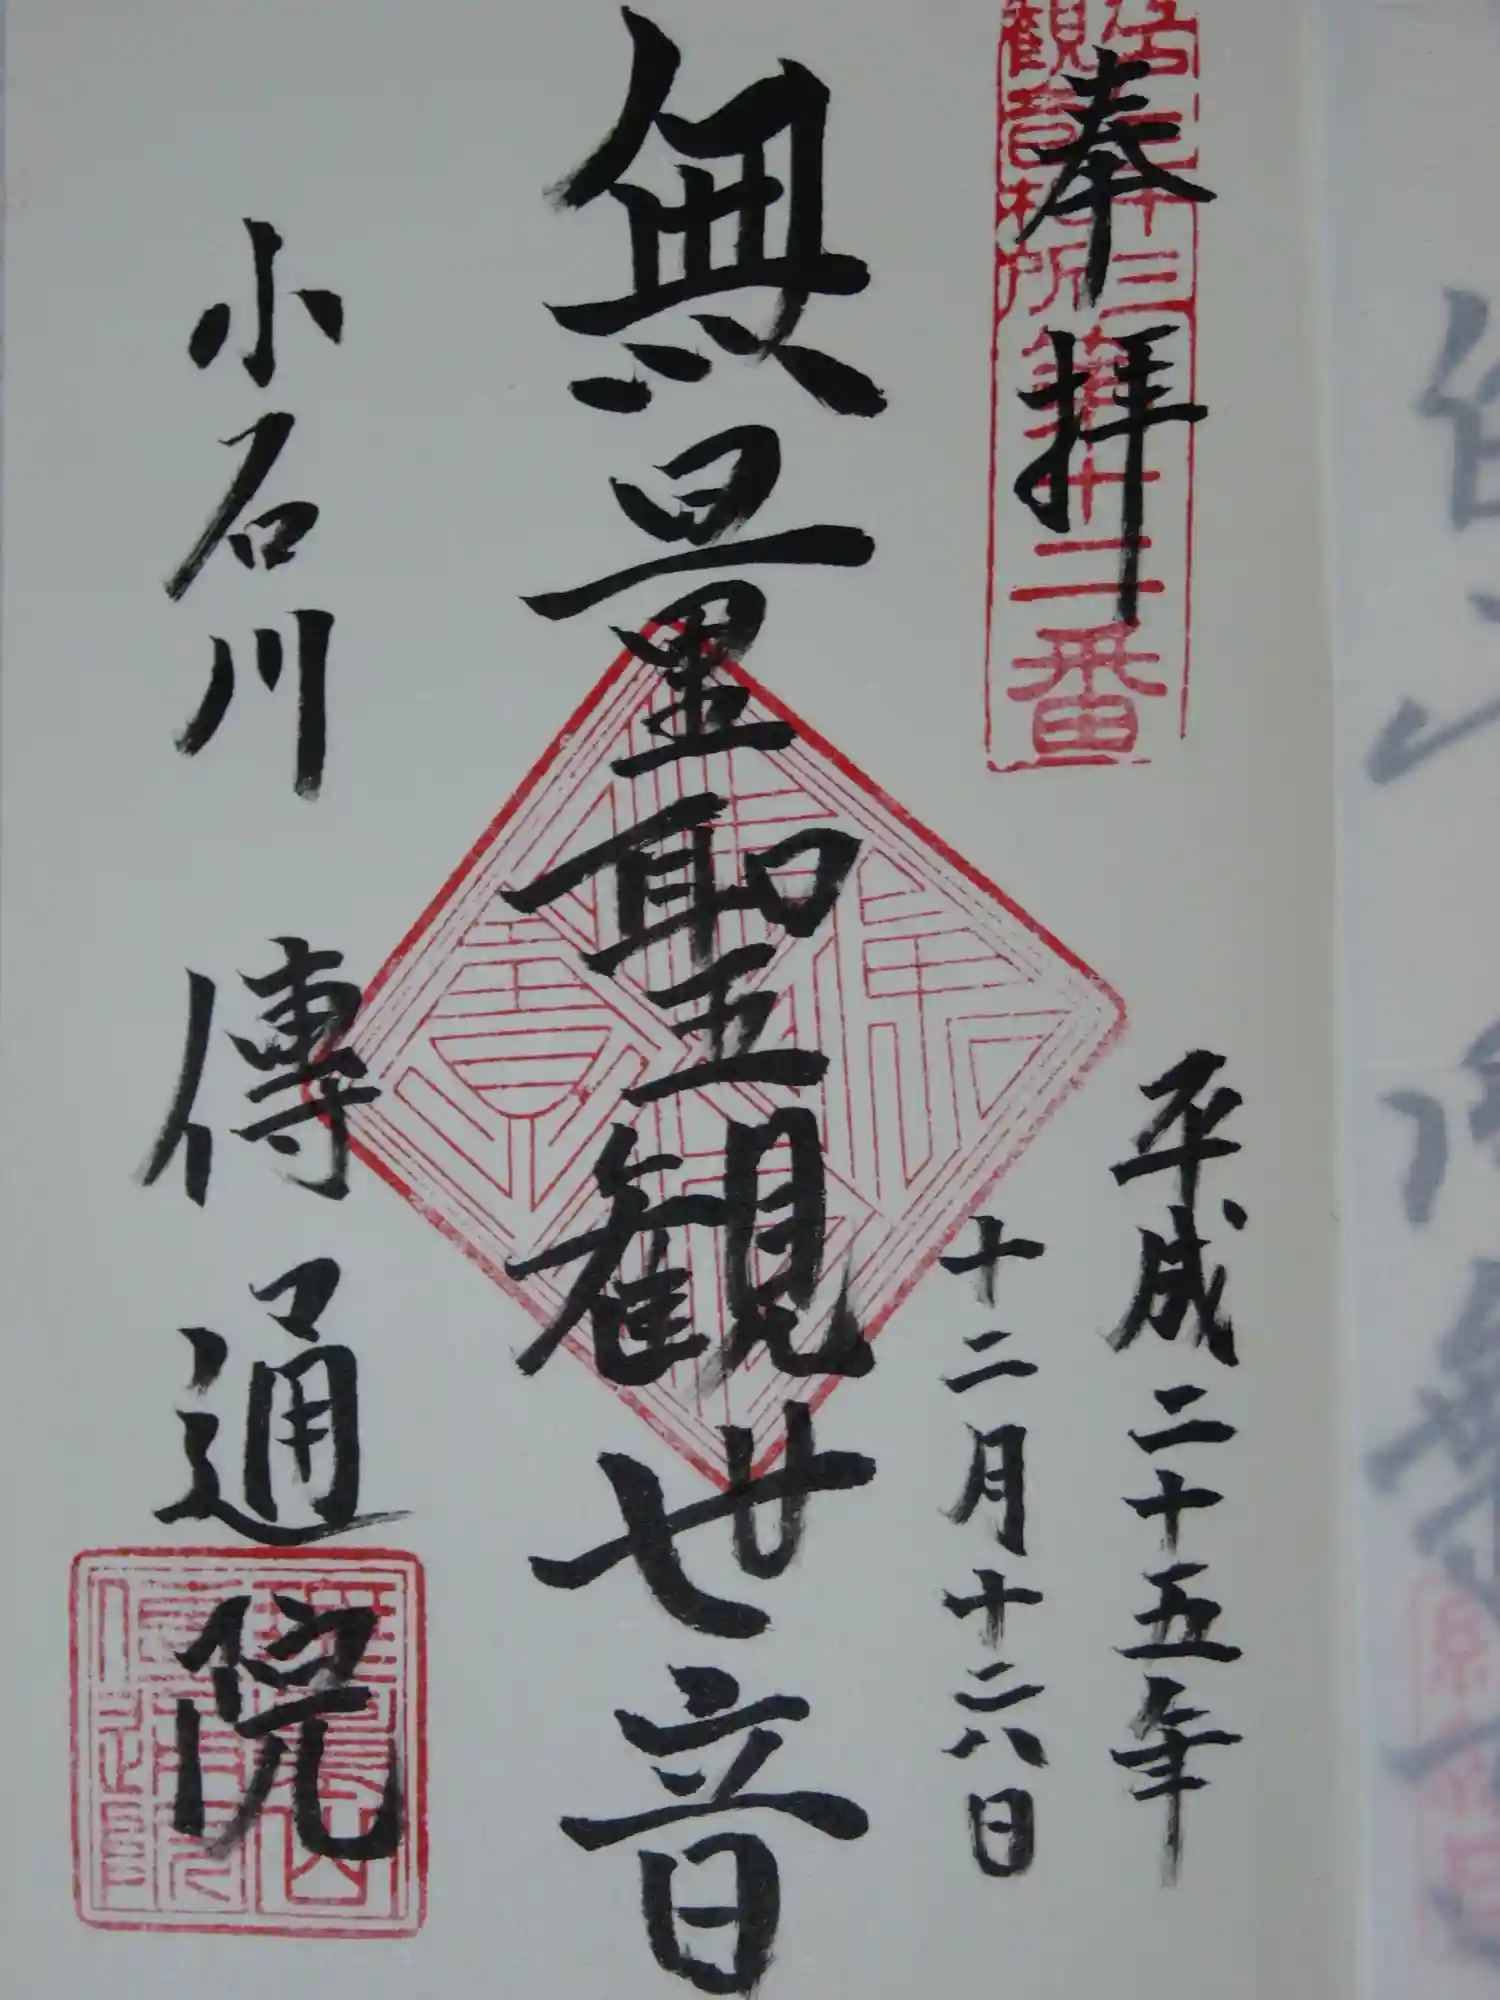 奉拝
江戸三十三観音札所第十二番
平成二十五年
十二月十六日
無量聖観世音
小石川 傳通院